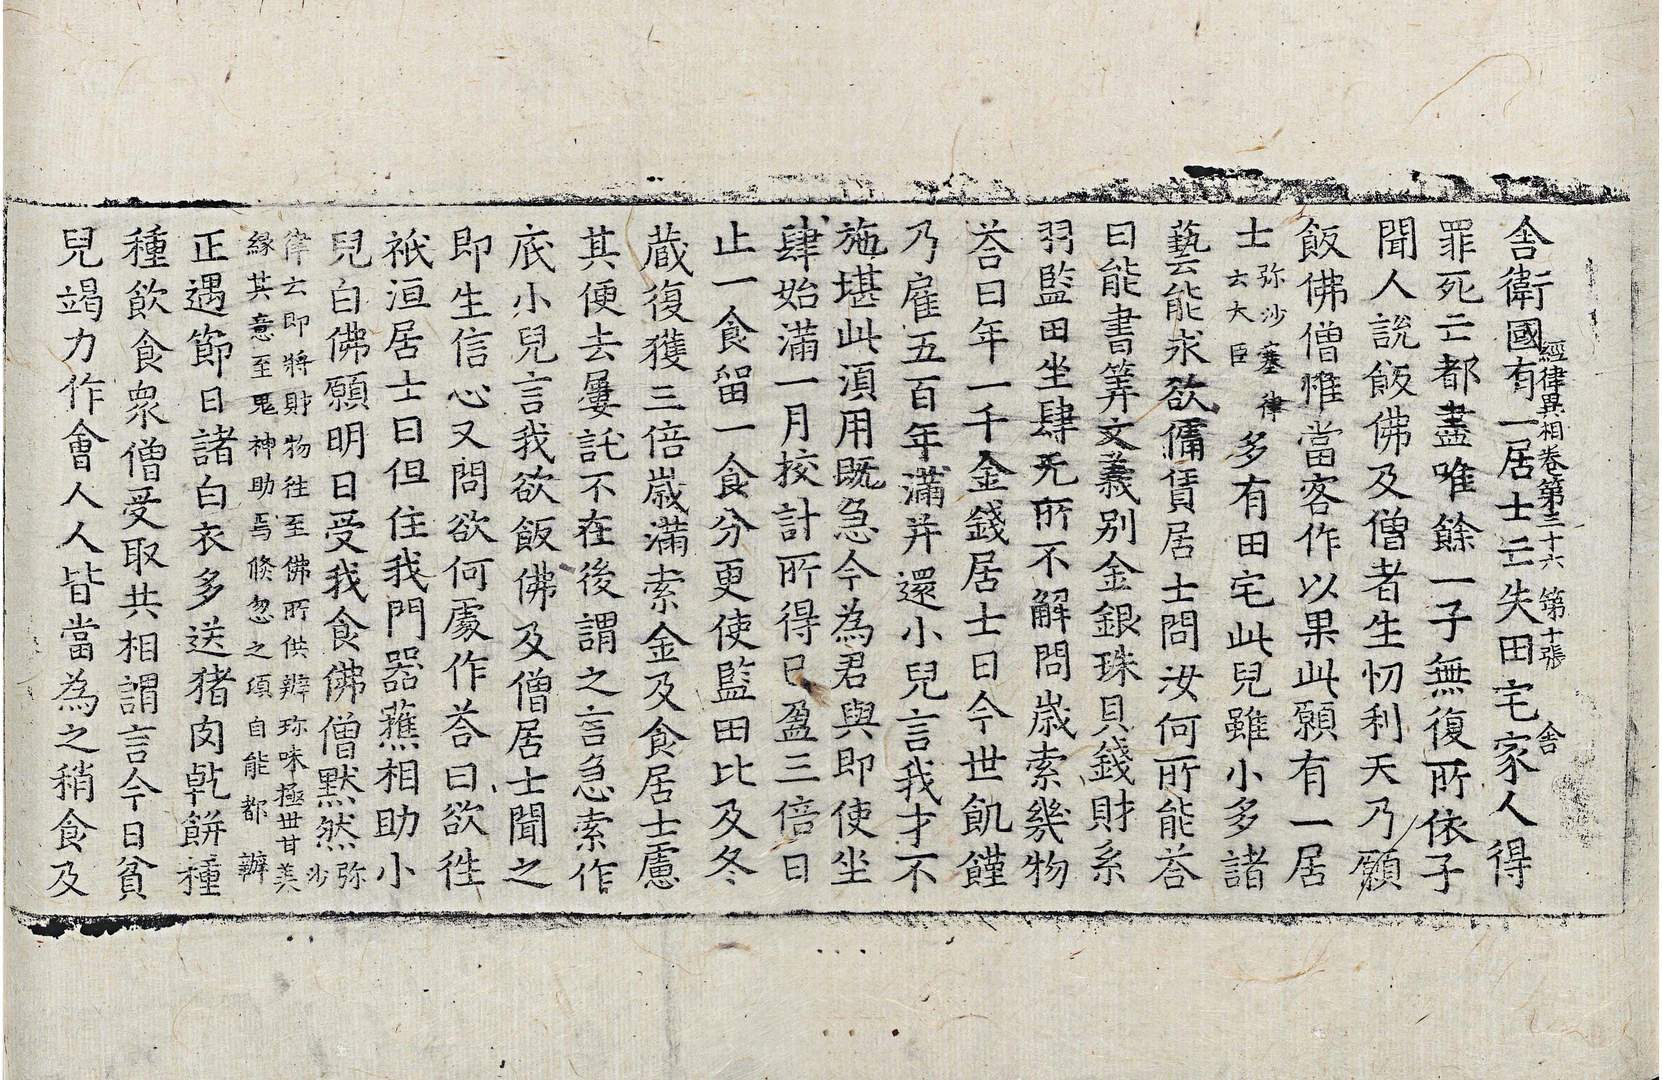 經律異相卷第三十六 第十張 舍
舍衛國有一居士亡失田宅家人得
罪死亡都盡唯餘一子無復所依子
聞人說飯佛及僧者生忉利天乃願
飯佛僧惟當客作以果此願有一居
士弥沙塞律云大臣多有田宅此兒雖小多諸
藝能求欲傭賃居士問汝何所能荅
曰能書筭文義別金銀珠貝錢財系
羽監田坐肆无所不解問歲索幾物
荅曰年一千金錢居士曰今世飢饉
乃雇五百年滿并還小兒言我才不
施堪此湏用既急今為君與即使坐
肆始滿一月挍計所得已盈三倍日
止一食留一食分更使監田比及冬
蔵復獲三倍歲滿索金及食居士慮
其便去屢託不在後謂之言急索作
底小兒言我欲飯佛及僧居士聞之
即生信心又問欲何處作荅曰欲徃
祇洹居士曰但住我門器蕉相助小
兒白佛願明日受我食佛僧默然弥沙
律云即將財物徃至佛所供辦珎味極世甘美
緣其意至鬼神助焉倐忽之項自能都辦
正遇節日諸白衣多送猪肉乹餅種
種飲食衆僧受取共相謂言今日貧
兒竭力作會人人皆當為之稍食及